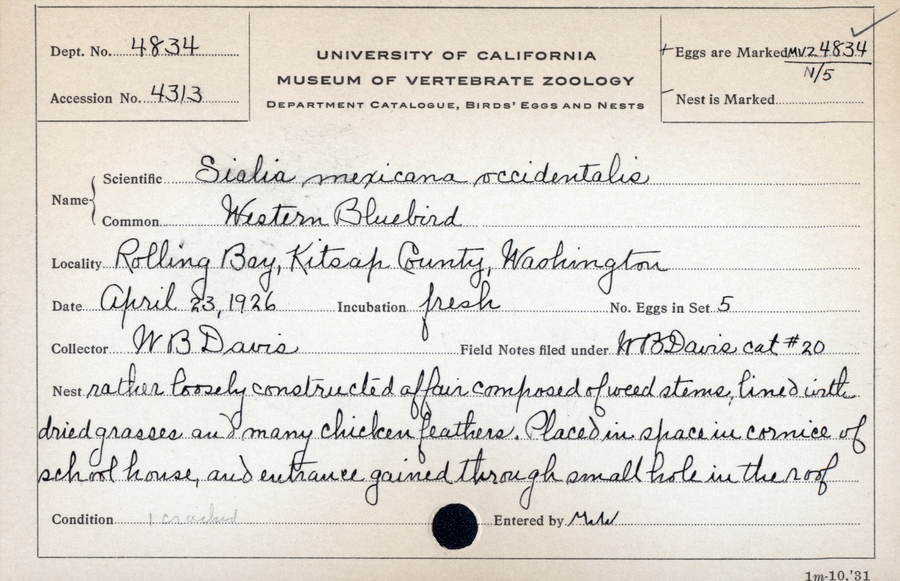 Dept. No. 4834
Accession No. 4313
UNIVERSITY OF CALIFORNIA
MUSEUM OF VERTEBRATE ZOOLOGY
DEPARTMENT CATALOGUE, BIRDS' EGGS AND NESTS
Eggs are Marked MVZ 4834
N/5
Nest is Marked
Name
Scientific Sialia mexicana occidentalis
Common Western Bluebird
Locality Rolling Bay, Kitsap County, Washington
Date April 23, 1926 Incubation fresh No. Eggs in Set 5
Collector W B Davis Field Notes filed under W B Davis cat #20
Nest rather loosely constructed affair composed of weed stems, lined with
dried grasses and many chicken feathers. Placed in space in cornice of
school house, and entrance gained through small hole in the roof
Condition 1 cracked Entered by
1m-10,'31